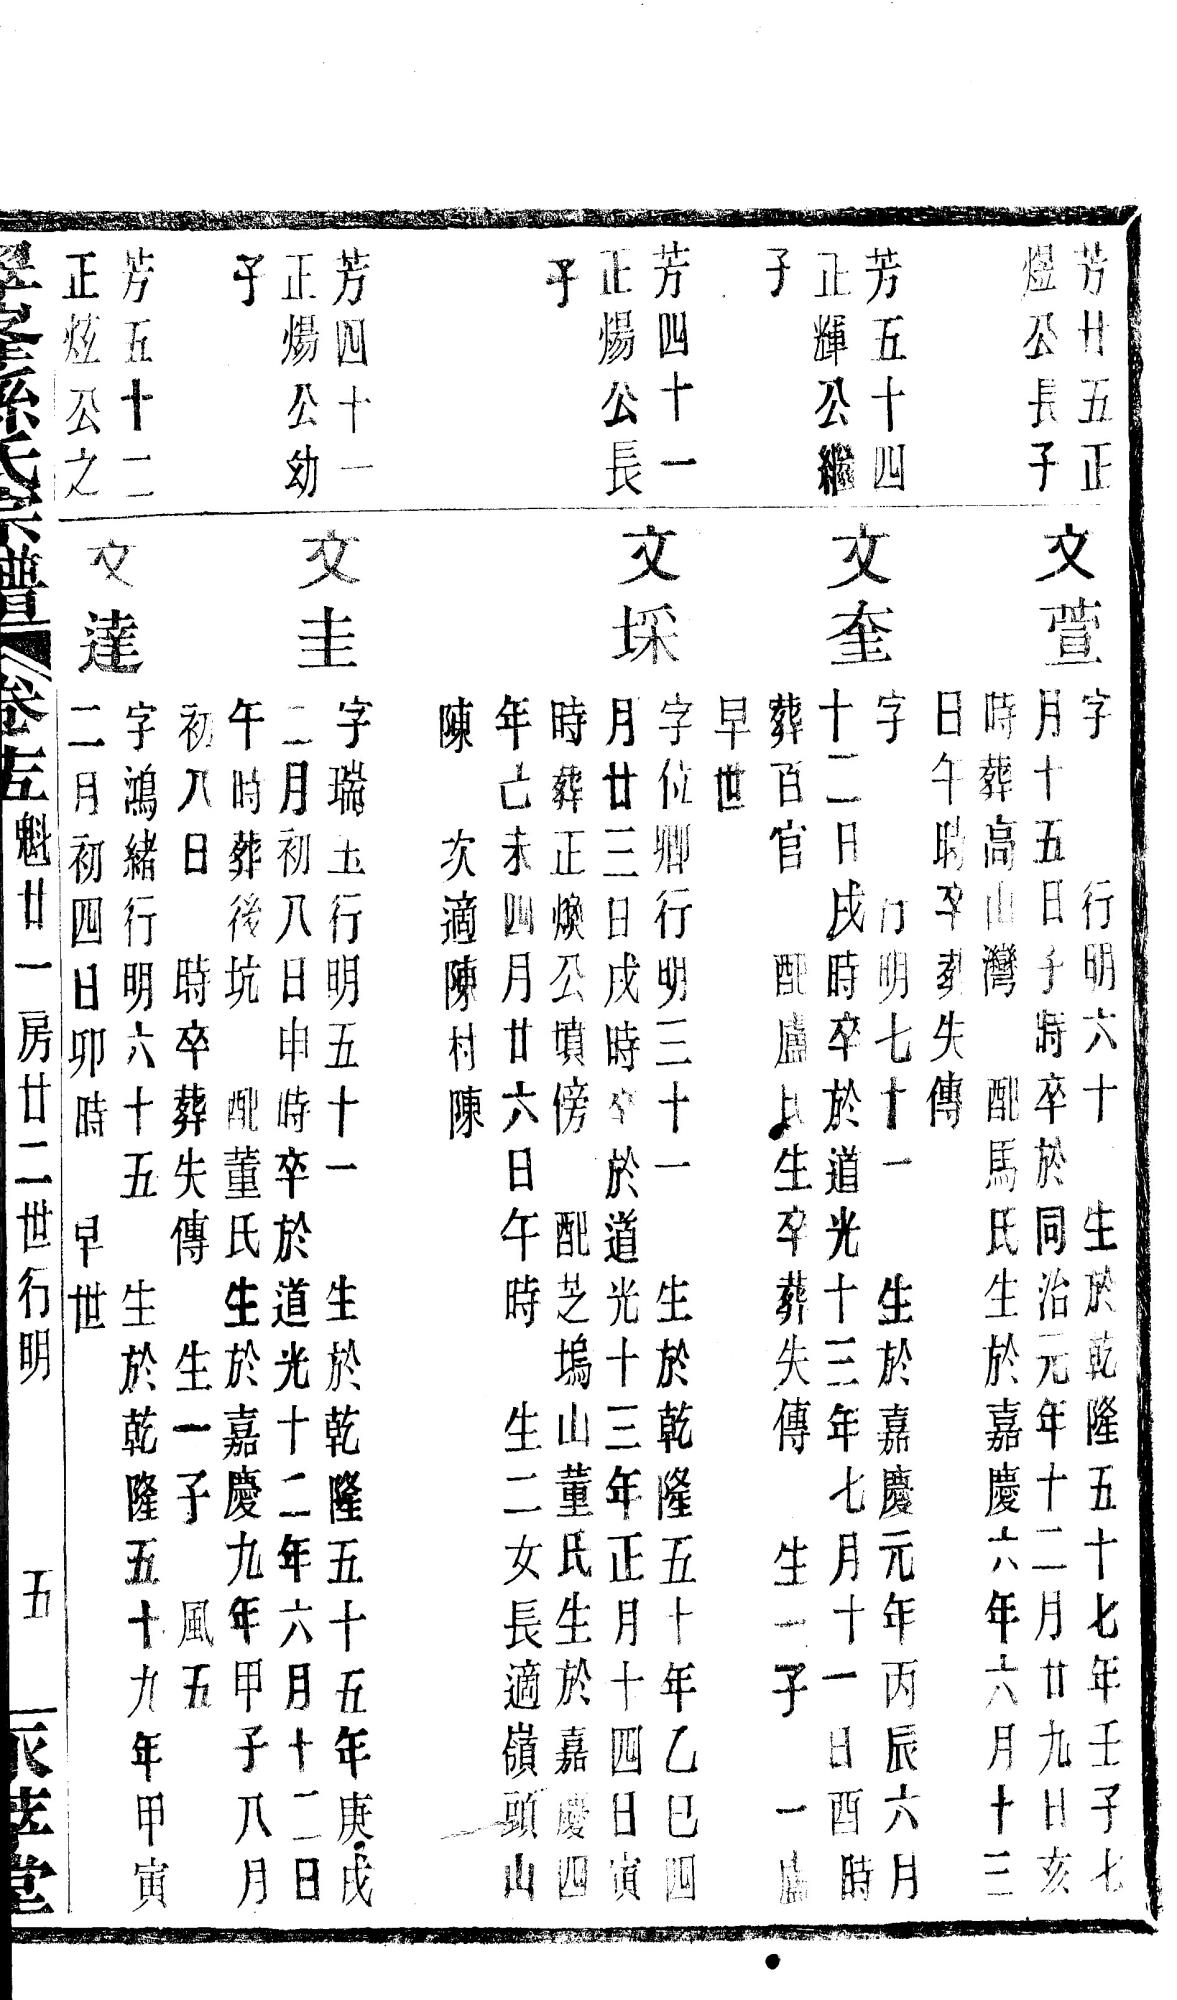 芳廿五正
煜公長子
文萱
字　行明六十　生於乾隆五十七年壬子七
月十五日子時卒於同治元年十二月廿九日亥
時葬高山灣　配馬氏生於嘉慶六年六月十三
日午時卒葬失傳
芳五十四
正輝公繼
子
文奎
字　行明七十一　生於嘉慶元年丙辰六月
十二日戌時卒於道光十三年七月十一日酉時
葬百官　配盧氏生卒葬失傳　生一子　一盧
早世
芳四十一
正煬公長
子
文埰
字位卿行明三十一　生於乾隆五十年乙巳四
月廿三日戌時卒於道光十三年正月十四日寅
時葬正煥公墳傍　配芝塢山董氏生於嘉慶四
年己未四月廿六日午時　生二女長適嶺頭山
陳　次適陳村陳
芳四十一
正煬公幼
子
文圭
字瑞玉行明五十一　生於乾隆五十五年庚戌
二月初八日申時卒於道光十二年六月十二日
午時葬後坑　配董氏生於嘉慶九年甲子八月
初八日　時卒葬失傳　生一子　風五
芳五十二
正炫公之
文達
字鴻緒行明六十五　生於乾隆五十九年甲寅
二月初四日卯時　早世
孫氏宗譜 卷十五 魁廿一房廿二世行明　五　堂